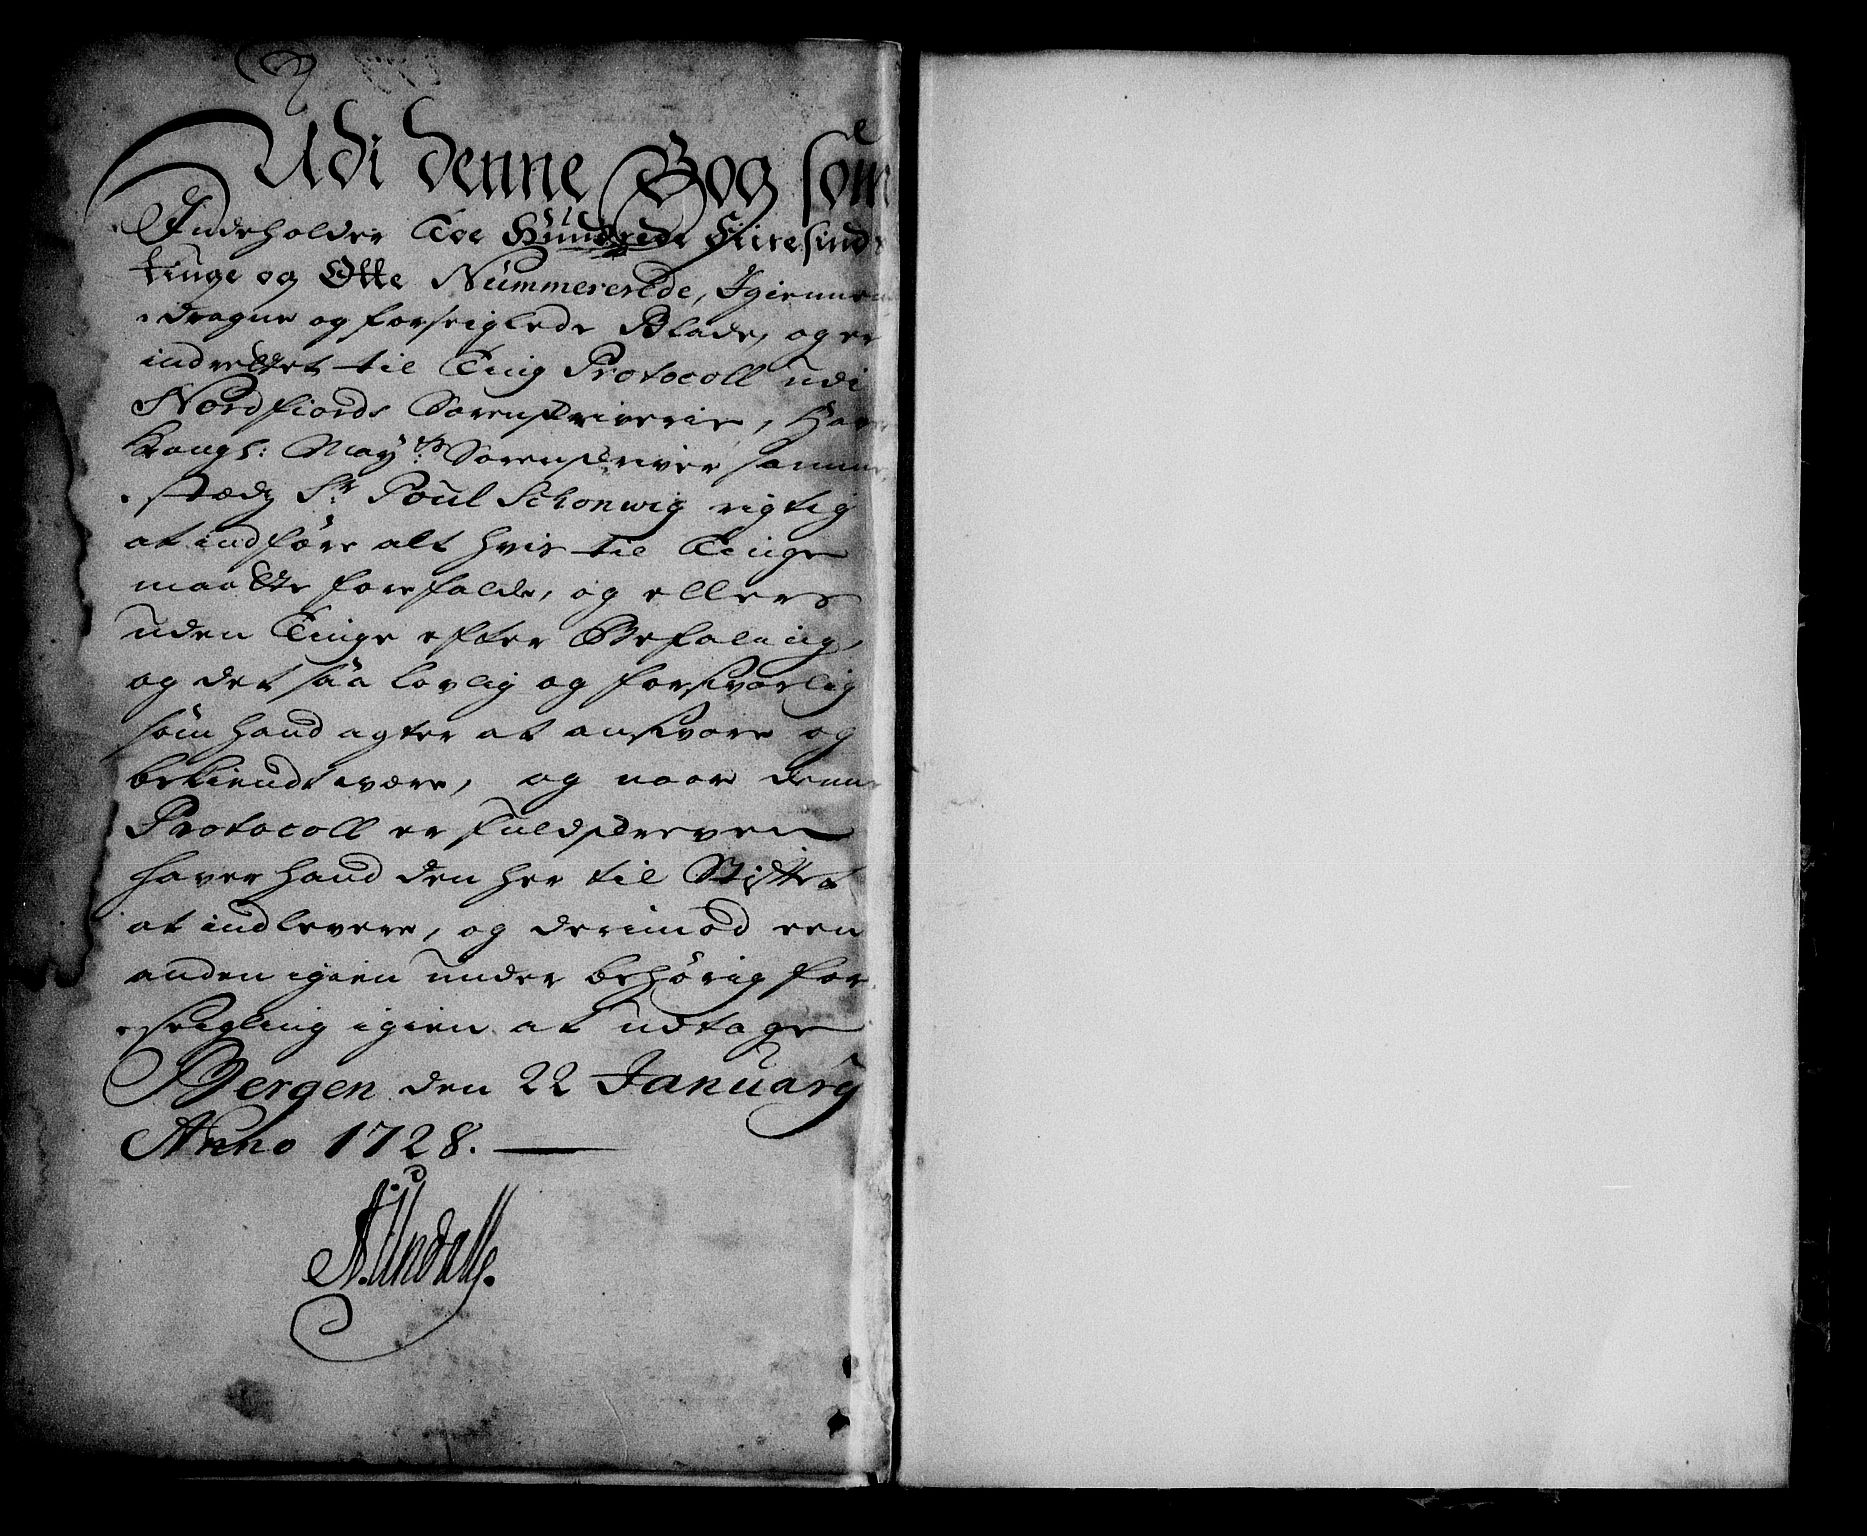 Udi denne Bog som
Indeholder Toe Hundrede Fiiresinds
tiuge og Otte Nummererede, Igiennem
dragne og forseiglede Blade, og er
indrettet til Ting Protocoll udi
Nordfiords Sorenskriverie, Haver
Kongl: May:ts Sorenskriver samme
stædz Sr. Poul Schonwig rigtig
at indføre alt hvis til Tinge
maatte forefalde, og ellers
uden Tinge efter Befaling,
og det saa lovlig og forsvarlig
som hand agter at ansvare og
bekiendt være, og naar denne
Protocoll er fuldskreven
haver hand den her til Stiftet
at indlevere, og derimod een
anden igien under behørig for
seigling igien at udtage
Bergen den 22 January
Anno 1728.
A. Undall.